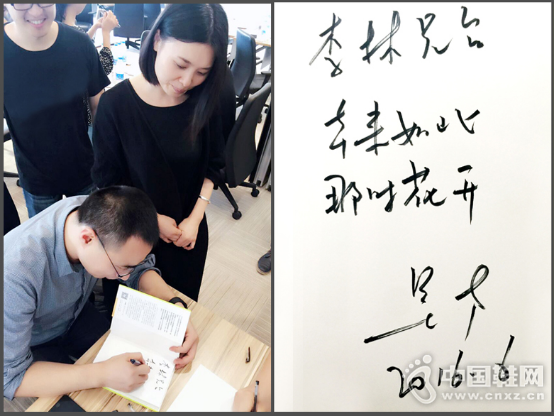 李林兄台
本来如此
那时花开
2016.6
中国鞋网
www.cnxz.cn